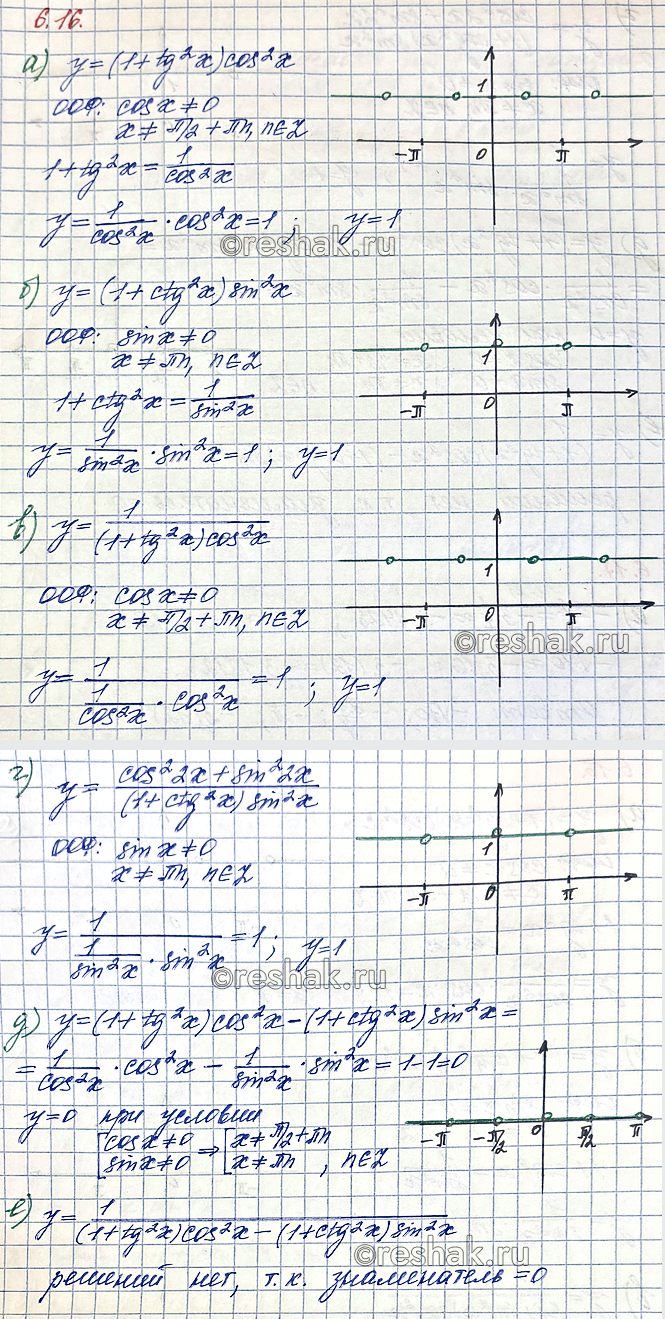 6.16.
а) y=(1+tg²x)cos²x
ООФ: cosx≠0
x≠π/2+πn, n∈Z
1+tg²x=1/cos²x
y=1/cos²x·cos²x=1; y=1
1
-π 0 π
©reshak.ru
б) y=(1+ctg²x)sin²x
ООФ: sinx≠0
x≠πn, n∈Z
1+ctg²x=1/sin²x
y=1/sin²x·sin²x=1; y=1
1
-π 0 π
в) y=1/((1+tg²x)cos²x)
ООФ: cosx≠0
x≠π/2+πn, n∈Z
y=1/(1/cos²x·cos²x)=1; y=1
1
-π 0 π
©reshak.ru
г) y=(cos²2x+sin²2x)/((1+ctg²x)sin²x)
ООФ: sinx≠0
x≠πn, n∈Z
y=1/(1/sin²x·sin²x)=1; y=1
1
-π 0 π
©reshak.ru
д) y=(1+tg²x)cos²x-(1+ctg²x)sin²x=
=1/cos²x·cos²x-1/sin²x·sin²x=1-1=0
y=0 при условии
[cosx≠0 ⇒ [x≠π/2+πn
[sinx≠0 [x≠πn, n∈Z
-π -π/2 0 π/2 π
е) y=1/((1+tg²x)cos²x-(1+ctg²x)sin²x)
©reshak.ru
решений нет, т.к. знаминатель=0